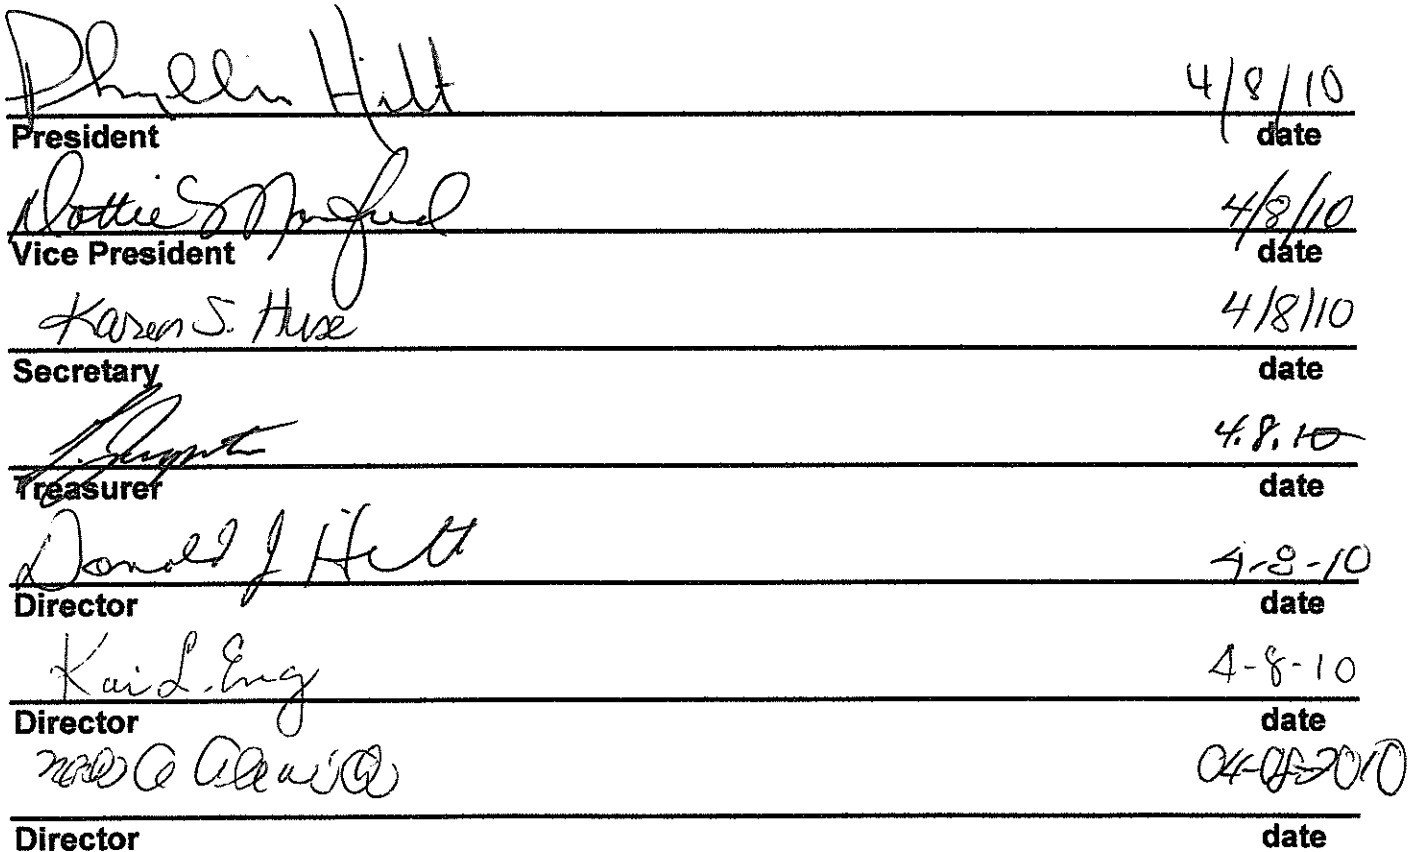 Phyllis Hilt 4/8/10
President date
Dottie S Manfred 4/8/10
Vice President date
Karen S. Huse 4/8/10
Secretary date
4.8.10
Treasurer date
Donald J Hilt 4-8-10
Director date
Kai L. Eng 4-8-10
Director date
04-08-2010
Director date